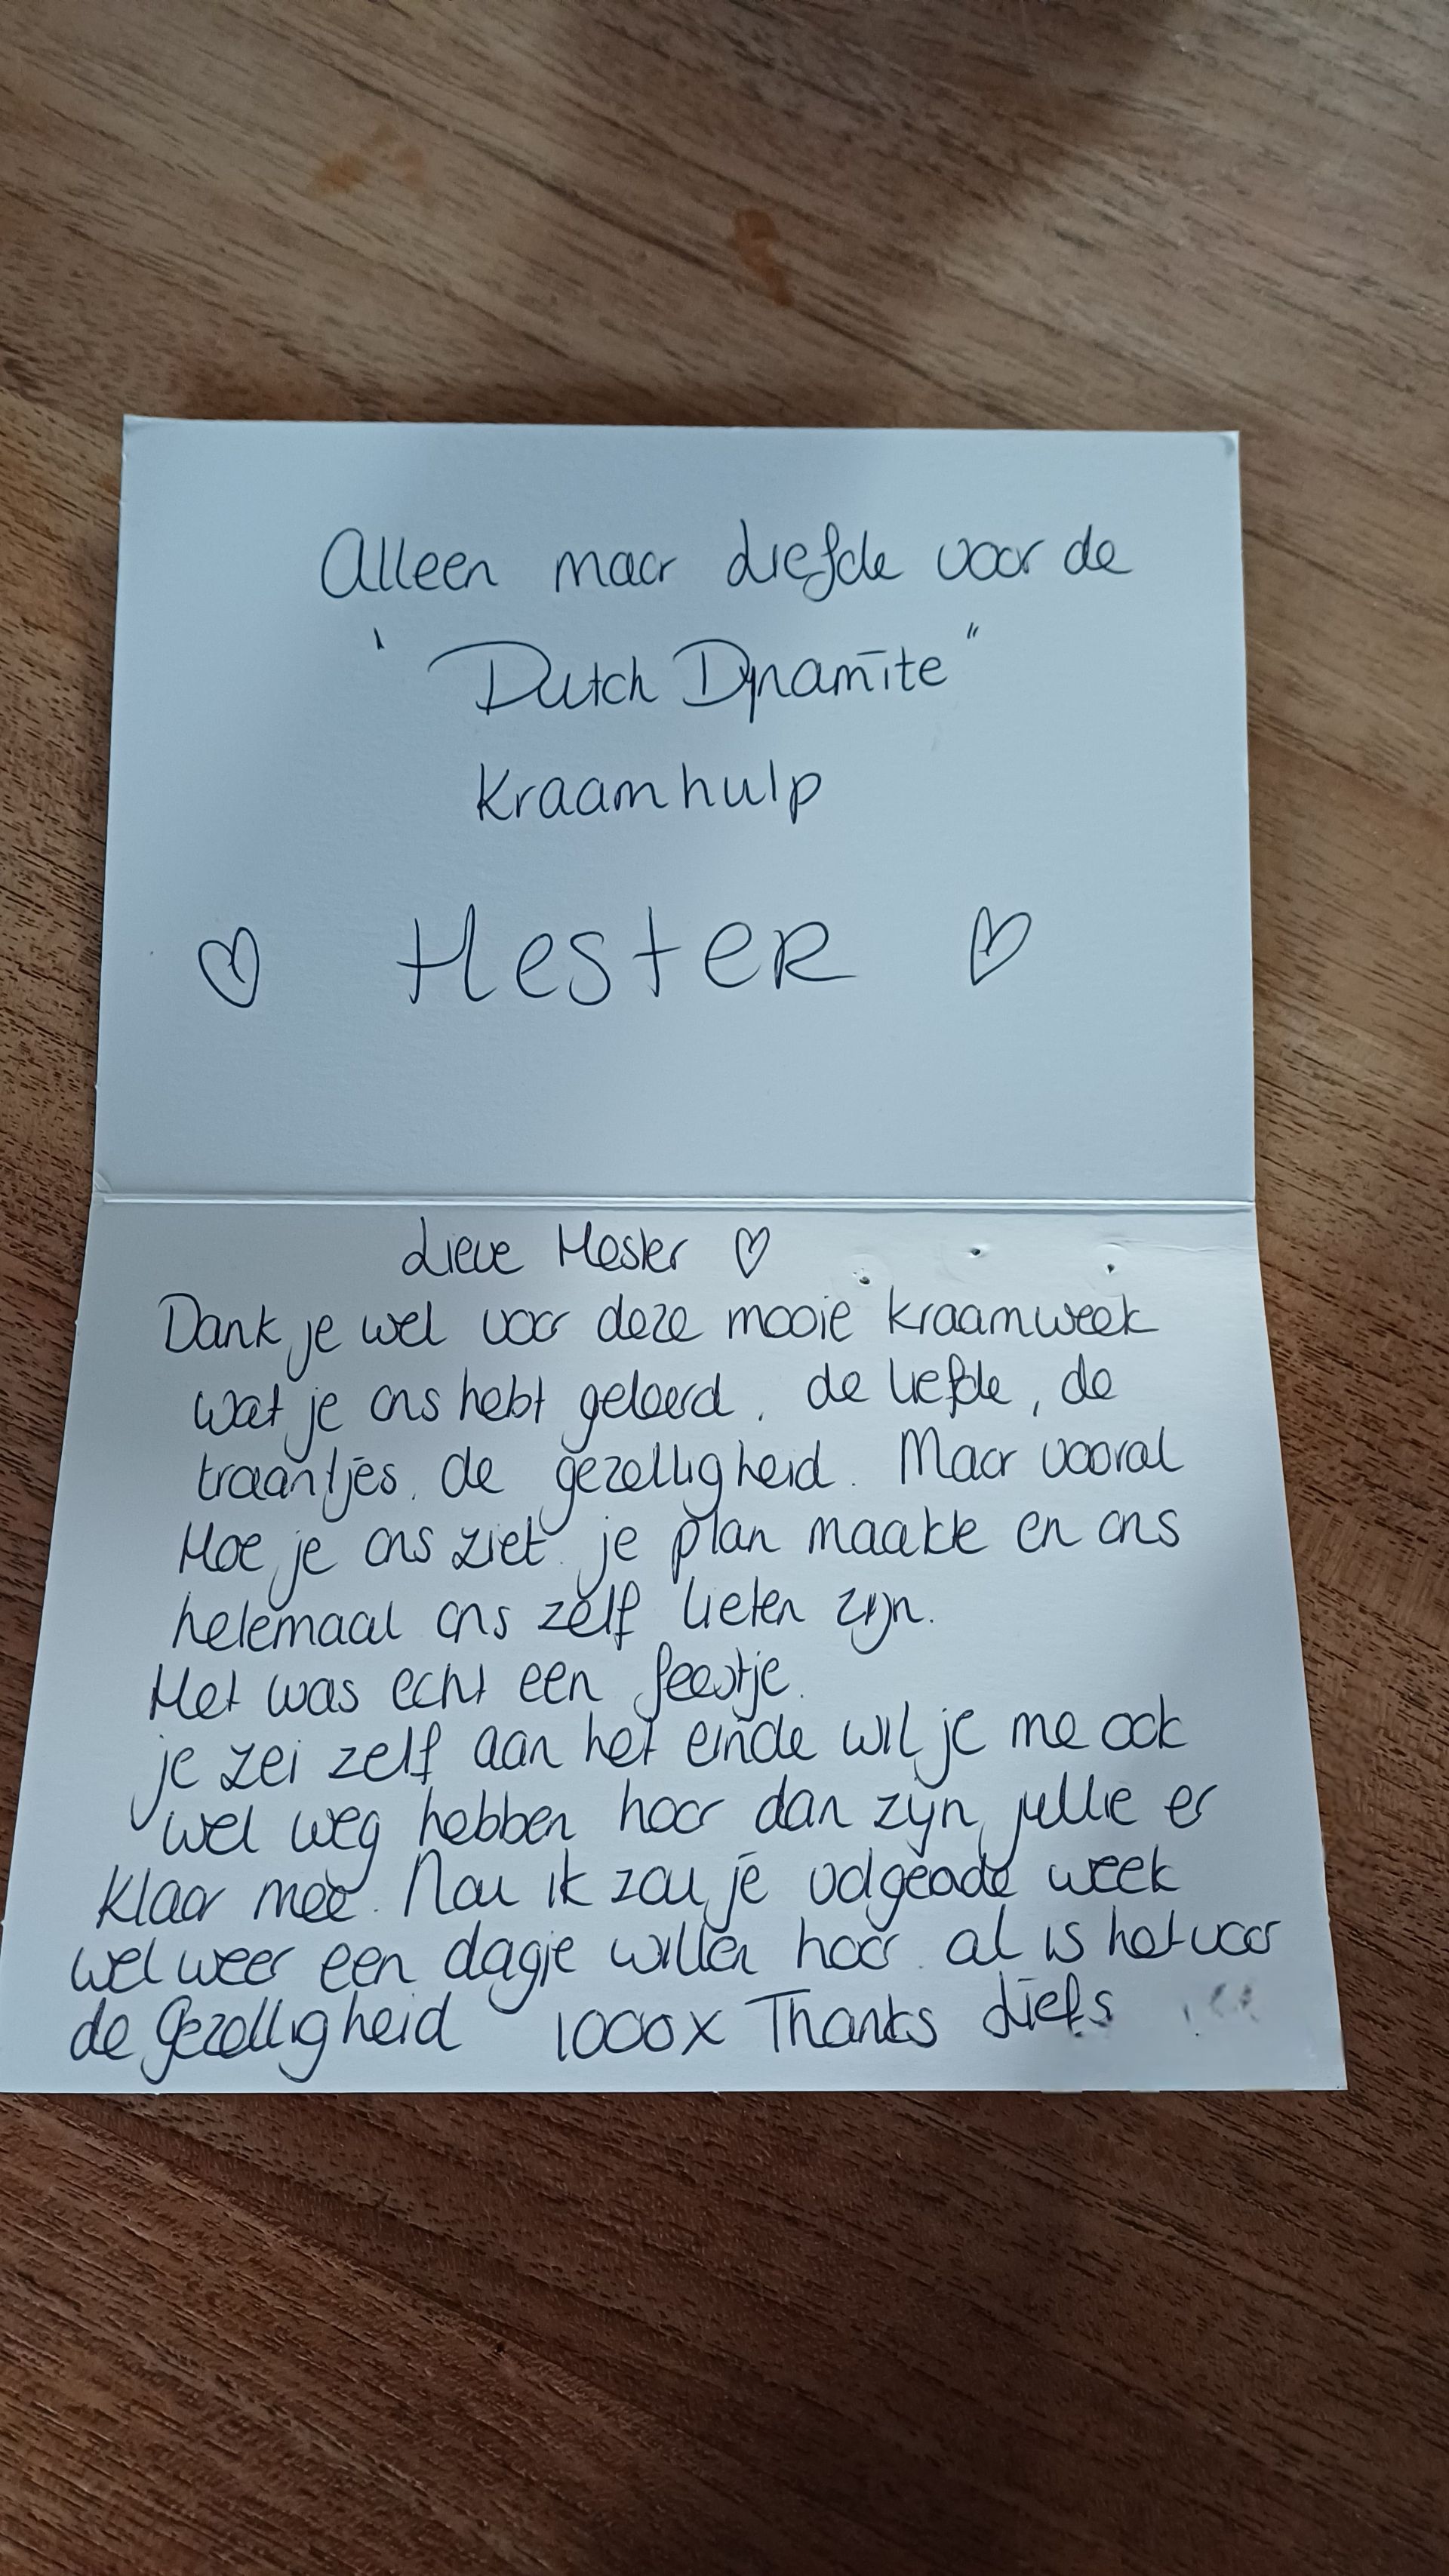 Alleen maar Liefde voor de
" Dutch Dynamite "
Kraamhulp
♡ Hester ♡
Lieve Hester ♡
Dank je wel voor deze mooie kraamweek
wat je ons hebt geleerd, de liefde, de
traantjes, de gezelligheid. Maar vooral
Hoe je ons ziet je plan maakte en ons
helemaal ons zelf lieten zijn.
Het was echt een feestje.
je zei zelf aan het einde wil je me ook
wel weg hebben hoor dan zijn jullie er
klaar mee. Nou ik zou je week
wel weer een dagje willen hoor al is het voor
de Gezelligheid 1000x Thanks Liefs